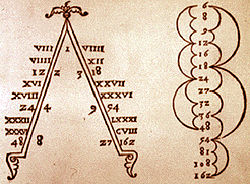 1
VIII VIIII
VIIII XII
12 2 3 18
XVI XXVII
XVIII XXXVI
24 4 9 54
XXXII LXXXI
XXXVI CVIII
48 8 27 162
6
8
9
12
16
18
24
27
32
36
48
54
81
108
162